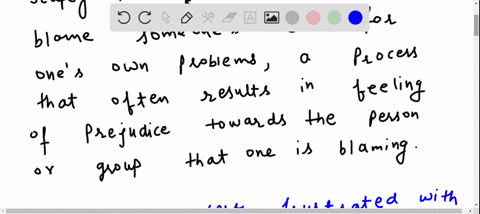 blame
one's own problems, a Process
that often results in feeling
of Prejudice towards the Person
or group that one is blaming.
frustrated with